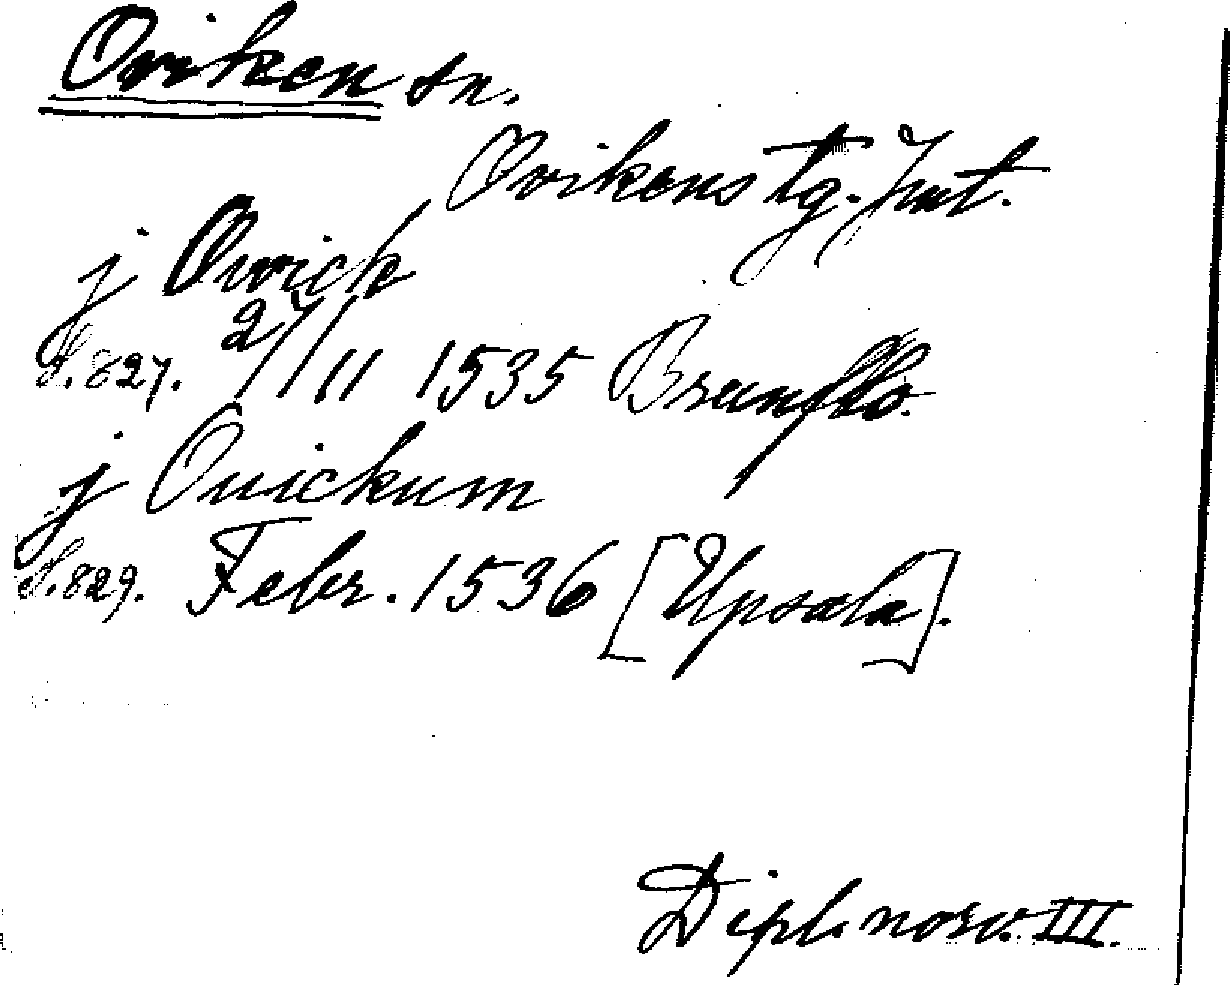 Oviken sn.
Ovikens tg. Jmt.
j Owich
S. 827. 27/11 1535 Brunflo.
j Ouickum
S. 829. Febr. 1536 [Upsala].
Dipl. norv. III.